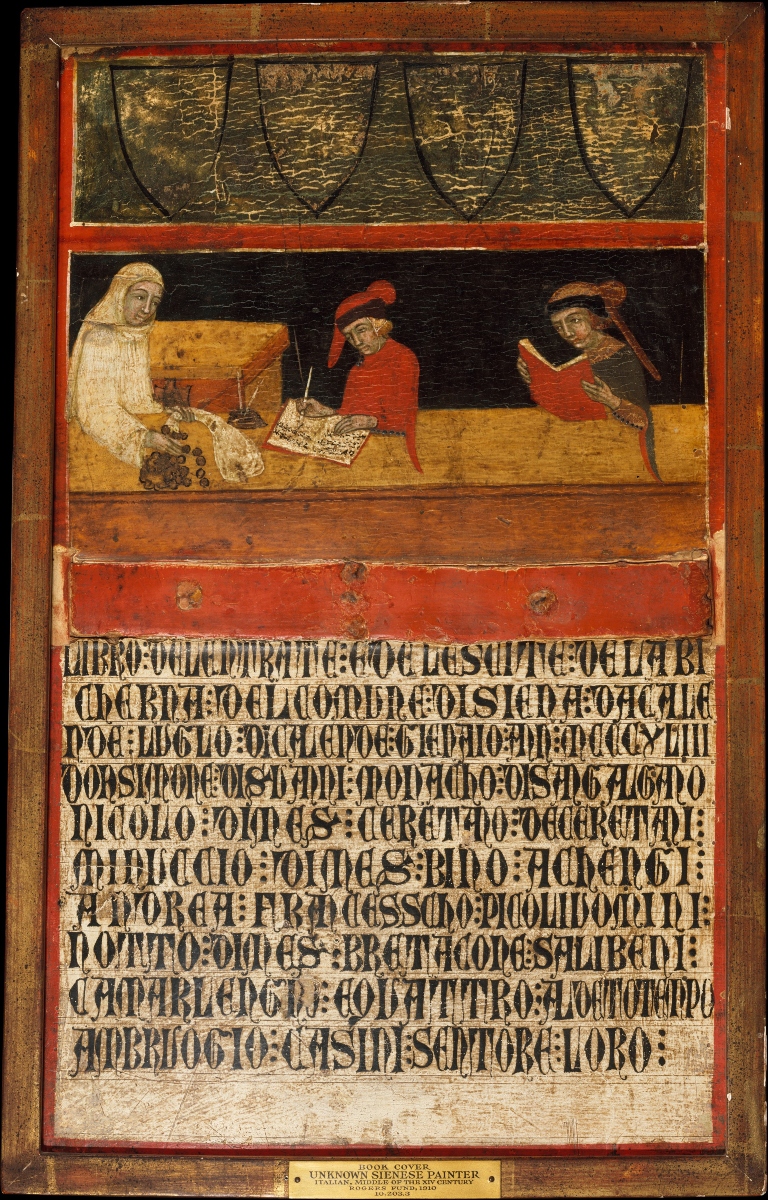 LIBRO:DELENTRATE:E DE LESCITE:DE LA BI
CHERNA:DEL COMUNE:DI SIENA:DA CALE
NDE:LUGLO:DI CALENDE:GIENAIO:ANN:MCCCXLIII
DOM SIMONE:DI S:VANNI:MONACHO:DI SAN GALGANO
NICOLO:DI MES:CERETANO:DE CERETANI:
MINUCCIO:DI MES:BINO:ACHENGI:
ANDREA:FRANCESSCHO:PICOLUOMINI:
NOTTO:DI MES:BRETACONE:SALIBENI:
CAMARLENGHI:E QUATTRO:AL DETO TENPO
AMBRUOGIO:CASINI:SENTORE:LORO:
BOOK COVER
UNKNOWN SIENESE PAINTER
ITALIAN, MIDDLE OF THE XIV CENTURY
ROGERS FUND, 1910
10.203.3